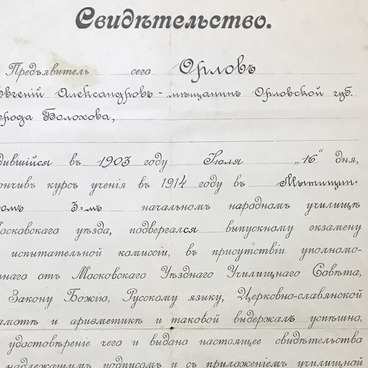 Свидѣтельство.
Предъявитель сего Орловъ
Евгеній Александровъ - мѣщанинъ Орловской губ.
города Болохова,
дившійся въ 1903 году Іюля „16" дня,
ончивъ курсъ ученія въ 1914 году въ Мытищин-
омъ 3=мъ начальномъ народномъ училищѣ
осковскаго уѣзда, подвергался выпускному экзамену
испытательной комиссіи, въ присутствіи уполномо-
ннаго отъ Московскаго Уѣзднаго Училищнаго Совѣта,
Закону Божію, Русскому языку, Церковно-славянской
амотѣ и ариѳметикѣ и таковой выдержалъ успѣшно,
удостовѣреніе чего и выдано настоящее свидѣтельство
надлежащимъ подписомъ и съ приложеніемъ училищной